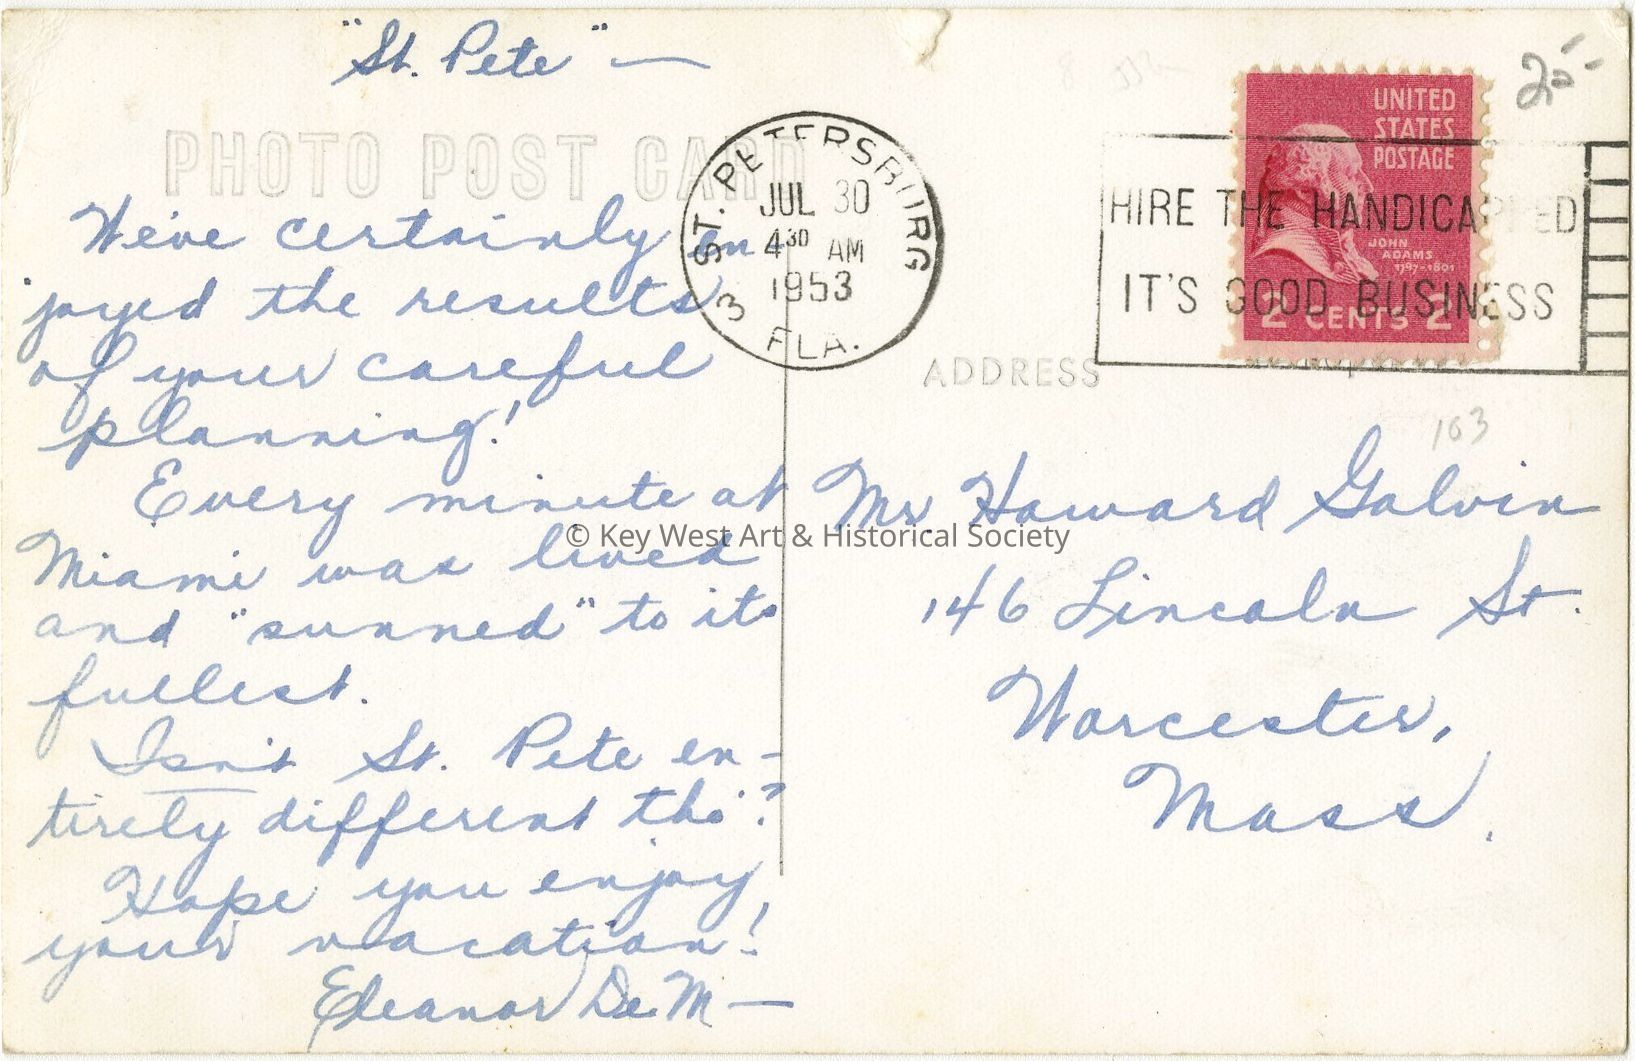 "St. Pete" —
PHOTO POST CARD
We've certainly en
joyed the results
of your careful
planning!
Every minute at
Miami was lived
and "sunned" to its
fullest.
Isn't St. Pete en-
tirely different tho'?
Hope you enjoy
your vacation!
Eleanor De M —
ST. PETERSBURG
JUL 30
4 30 AM
1953
3 FLA.
HIRE THE HANDICAPPED
IT'S GOOD BUSINESS
UNITED
STATES
POSTAGE
JOHN
ADAMS
1797-1801
2 CENTS 2
25-
ADDRESS
103
Mr Howard Galvin
146 Lincoln St.
Worcester,
Mass.
© Key West Art & Historical Society